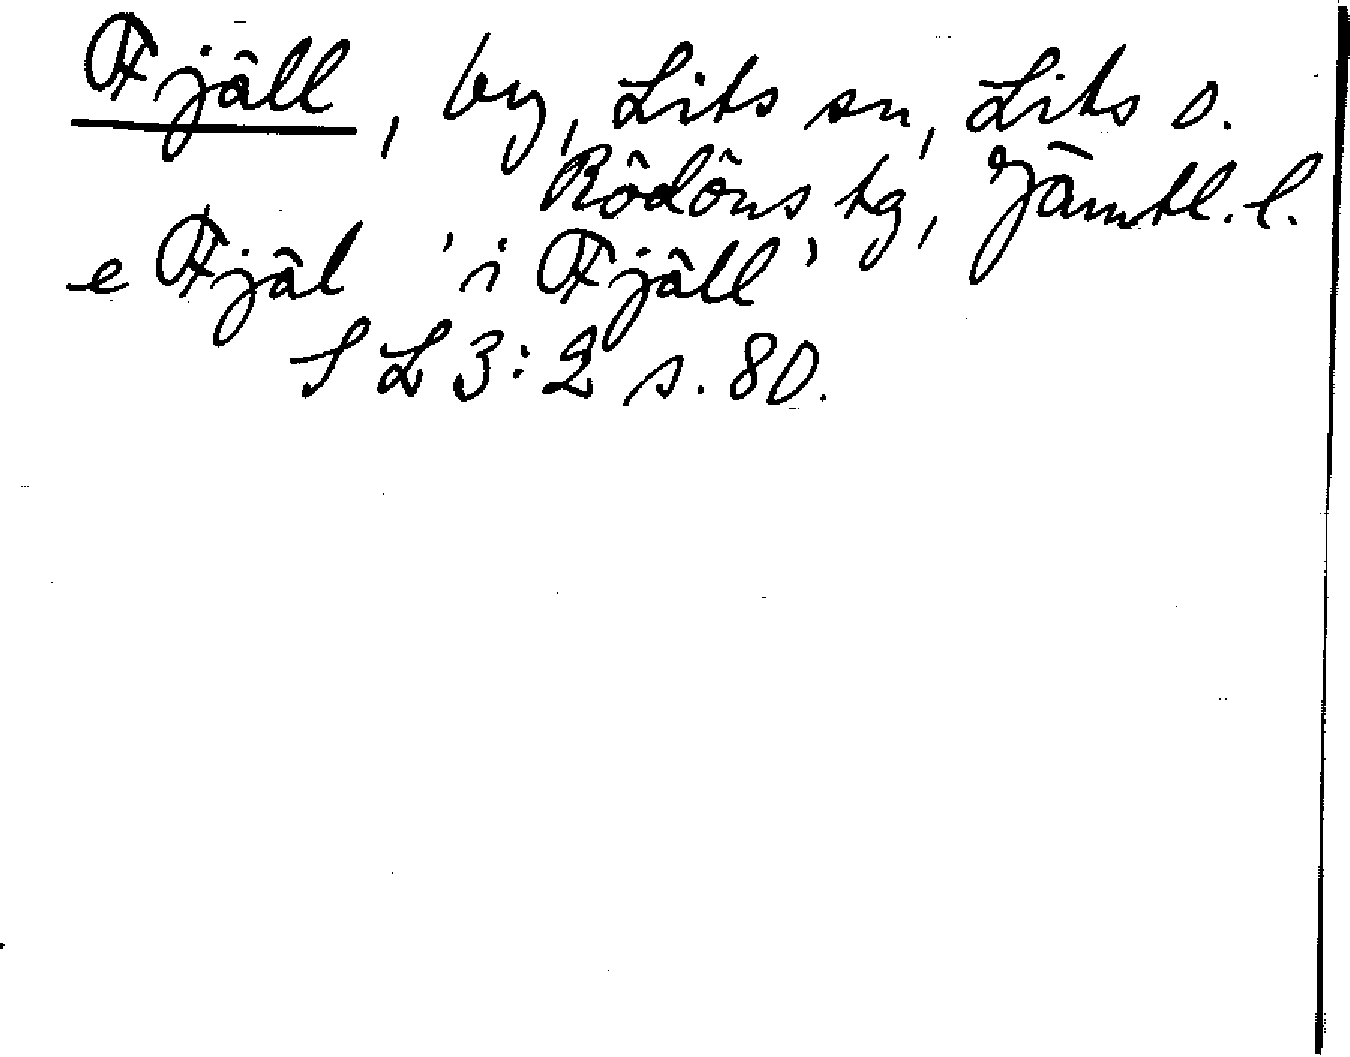 Fjäll, by, Lits sn, Lits o.
Rödöns tg, Jämtl. l.
e Fjäl 'i Fjäll'
SL 3:2 s. 80.